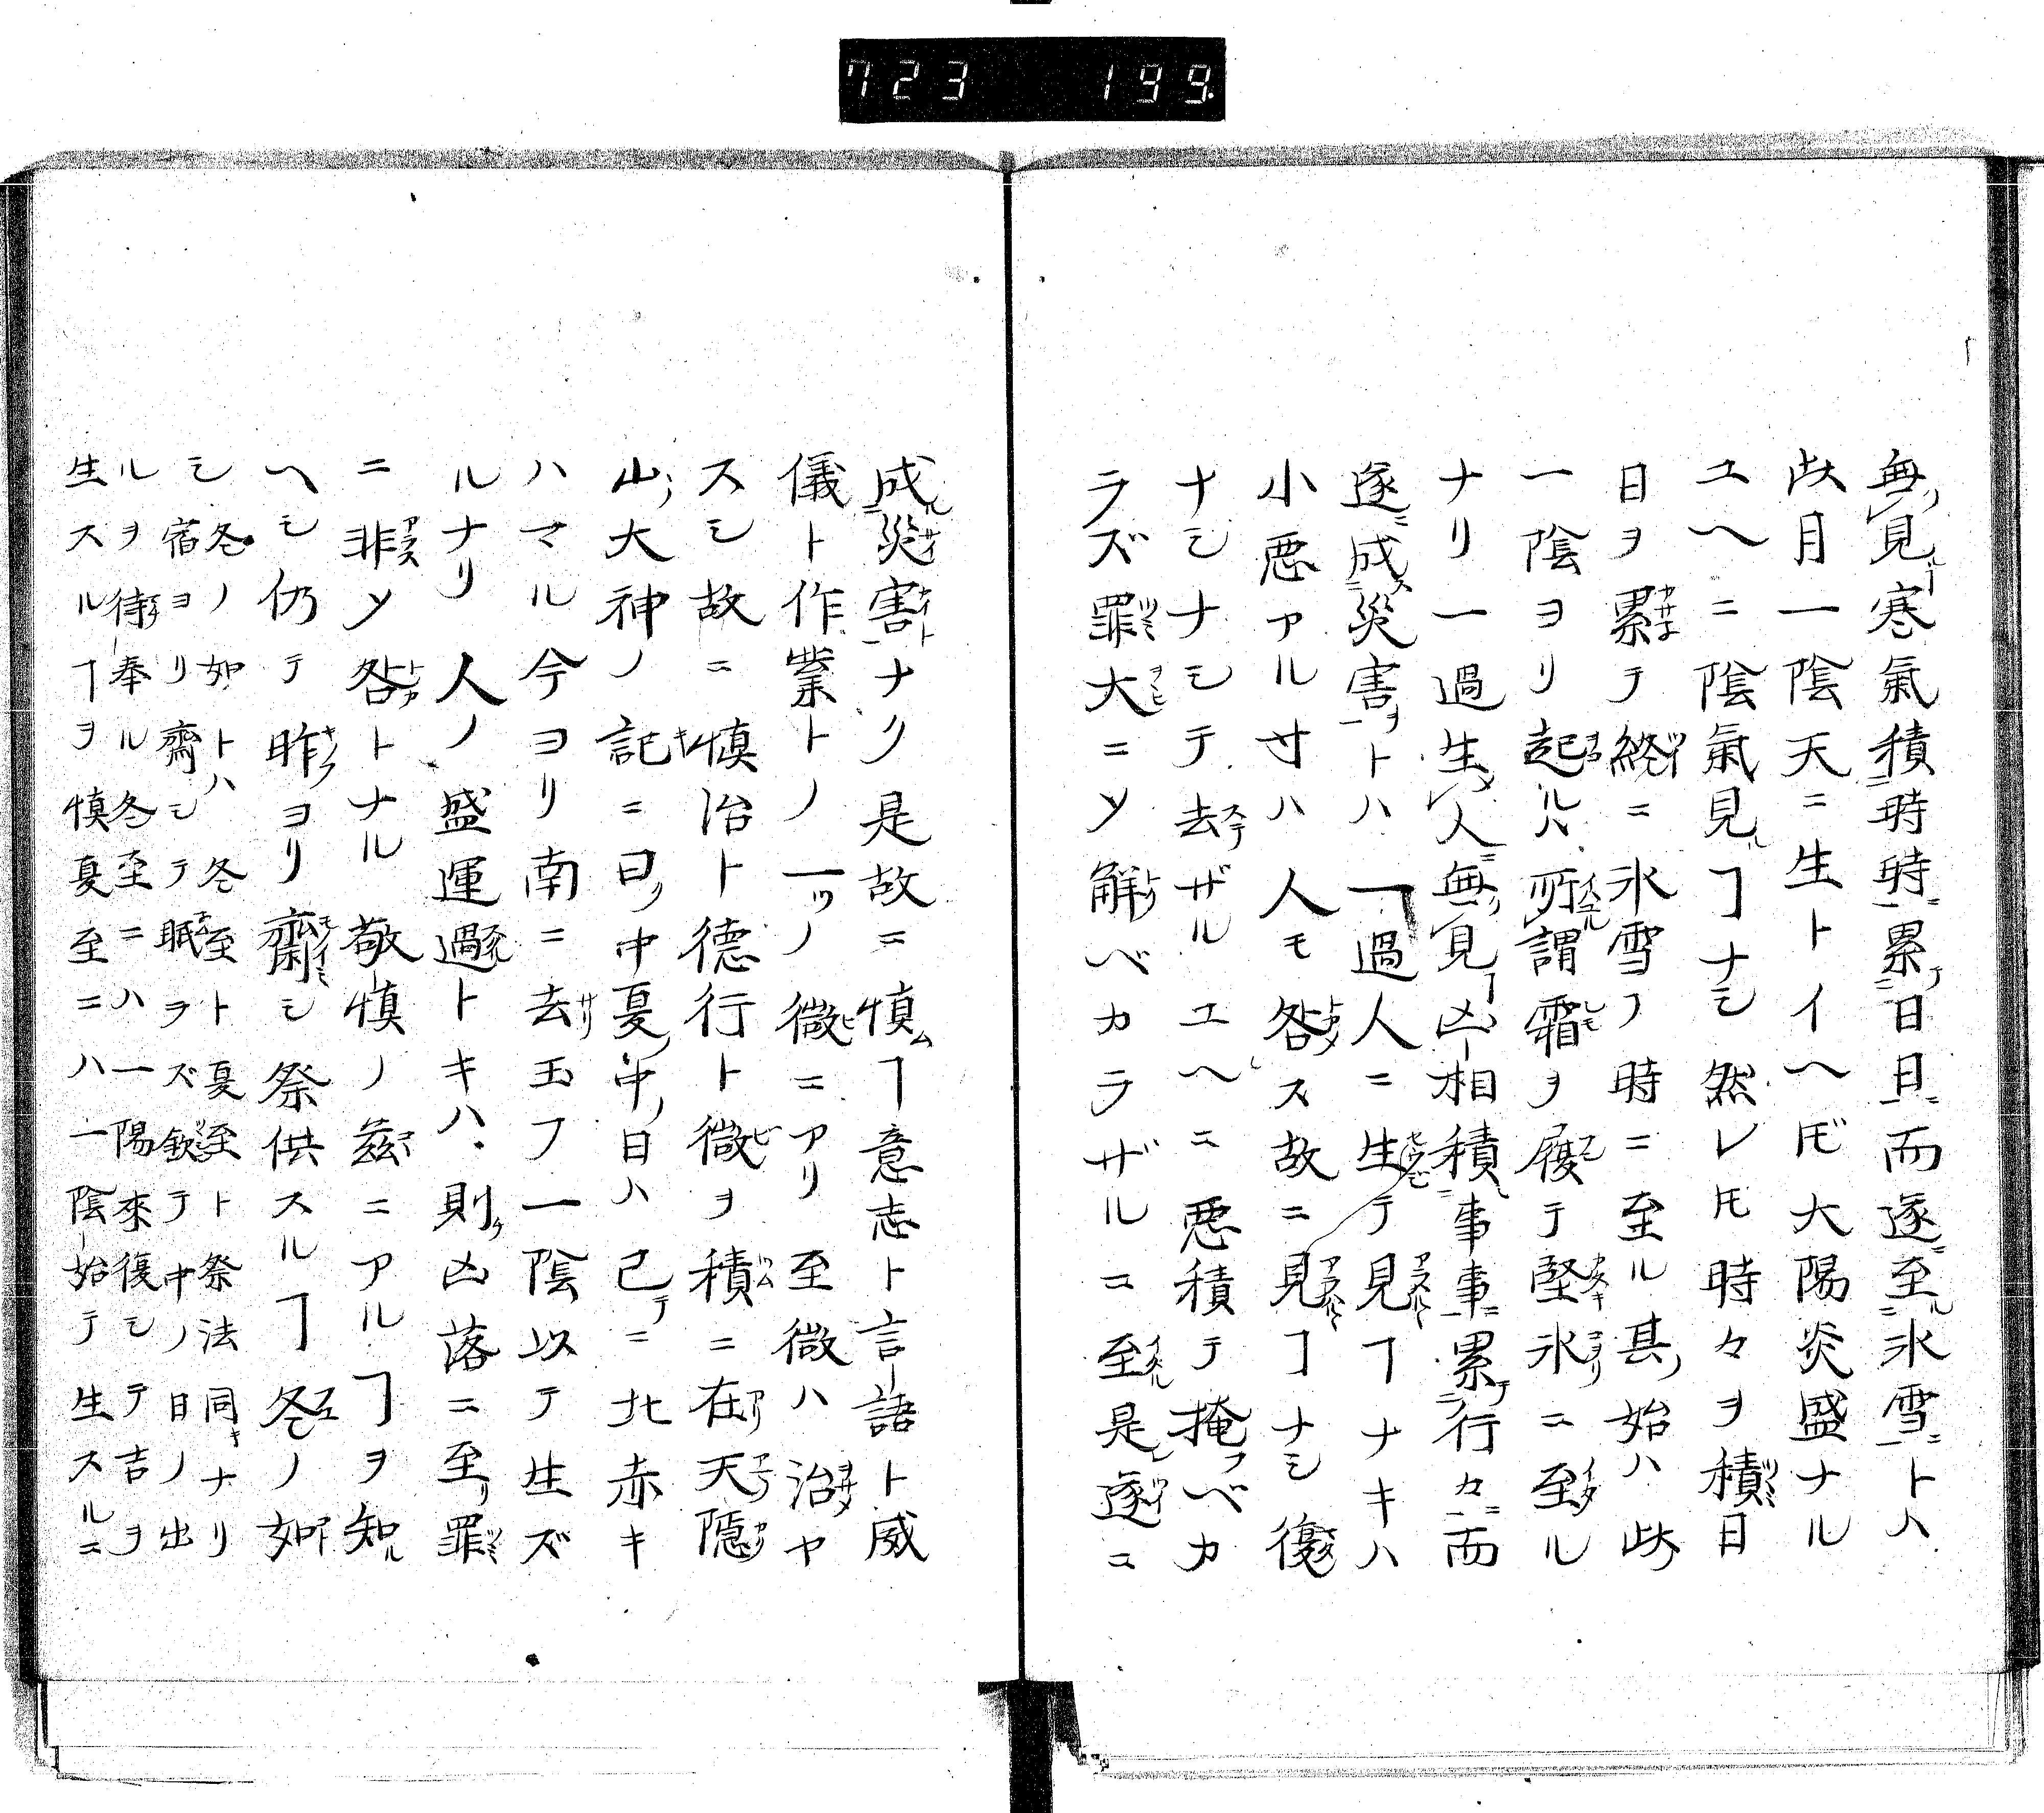 723 199.
無見寒氣積時時累日日而遂至氷雪トハ
此月一陰天ニ生トイヘ𪜈大陽炎盛ナル
ユヘニ陰氣見ルヿナシ然レ𪜈時々ヲ積日
日ヲ累テ終ニ氷雪ノ時ニ至ル其始ハ此
一陰ヨリ起ル所謂霜ヲ履テ堅氷ニ至ル
ナリ一過生人無見凶相積事事累行々而
遂成災害トハ一過人ニ生テ見ヿナキハ
小悪アル寸ハ人モ咎ス故ニ見ヿナシ復
ナシナシテ去ザルユヘニ悪積テ掩ベカ
ラズ罪大ニソ解ベカラザルニ至是遂ニ
成災害ナリ是故ニ慎ヿ意志ト言語ト威
儀ト作業トノ一ツノ微ニアリ至微ハ治ヤ
スシ故ニ慎治ト德行ト微ヲ積ニ在天隱
山大神ノ記ニ曰中夏中日ハ已ニ北赤キ
ハマル今ヨリ南ニ去玉フ一陰以テ生ズ
ルナリ人ノ盛運過トキハ則凶落ニ至罪
ニ非ソ咎トナル敬慎ノ茲ニアルヿヲ知
ヘシ仍テ昨ヨリ齋シ祭供スルヿ冬ノ如
シ冬ノ如トハ冬至ト夏至ト祭法同キナリ
宿ヨリ齋シテ眠ヲズ欽テ中ノ日ノ出
ルヲ待奉ル冬至ニハ一陽來復シテ吉ヲ
生スルヿヲ慎夏至ニハ一陰始テ生スルニ